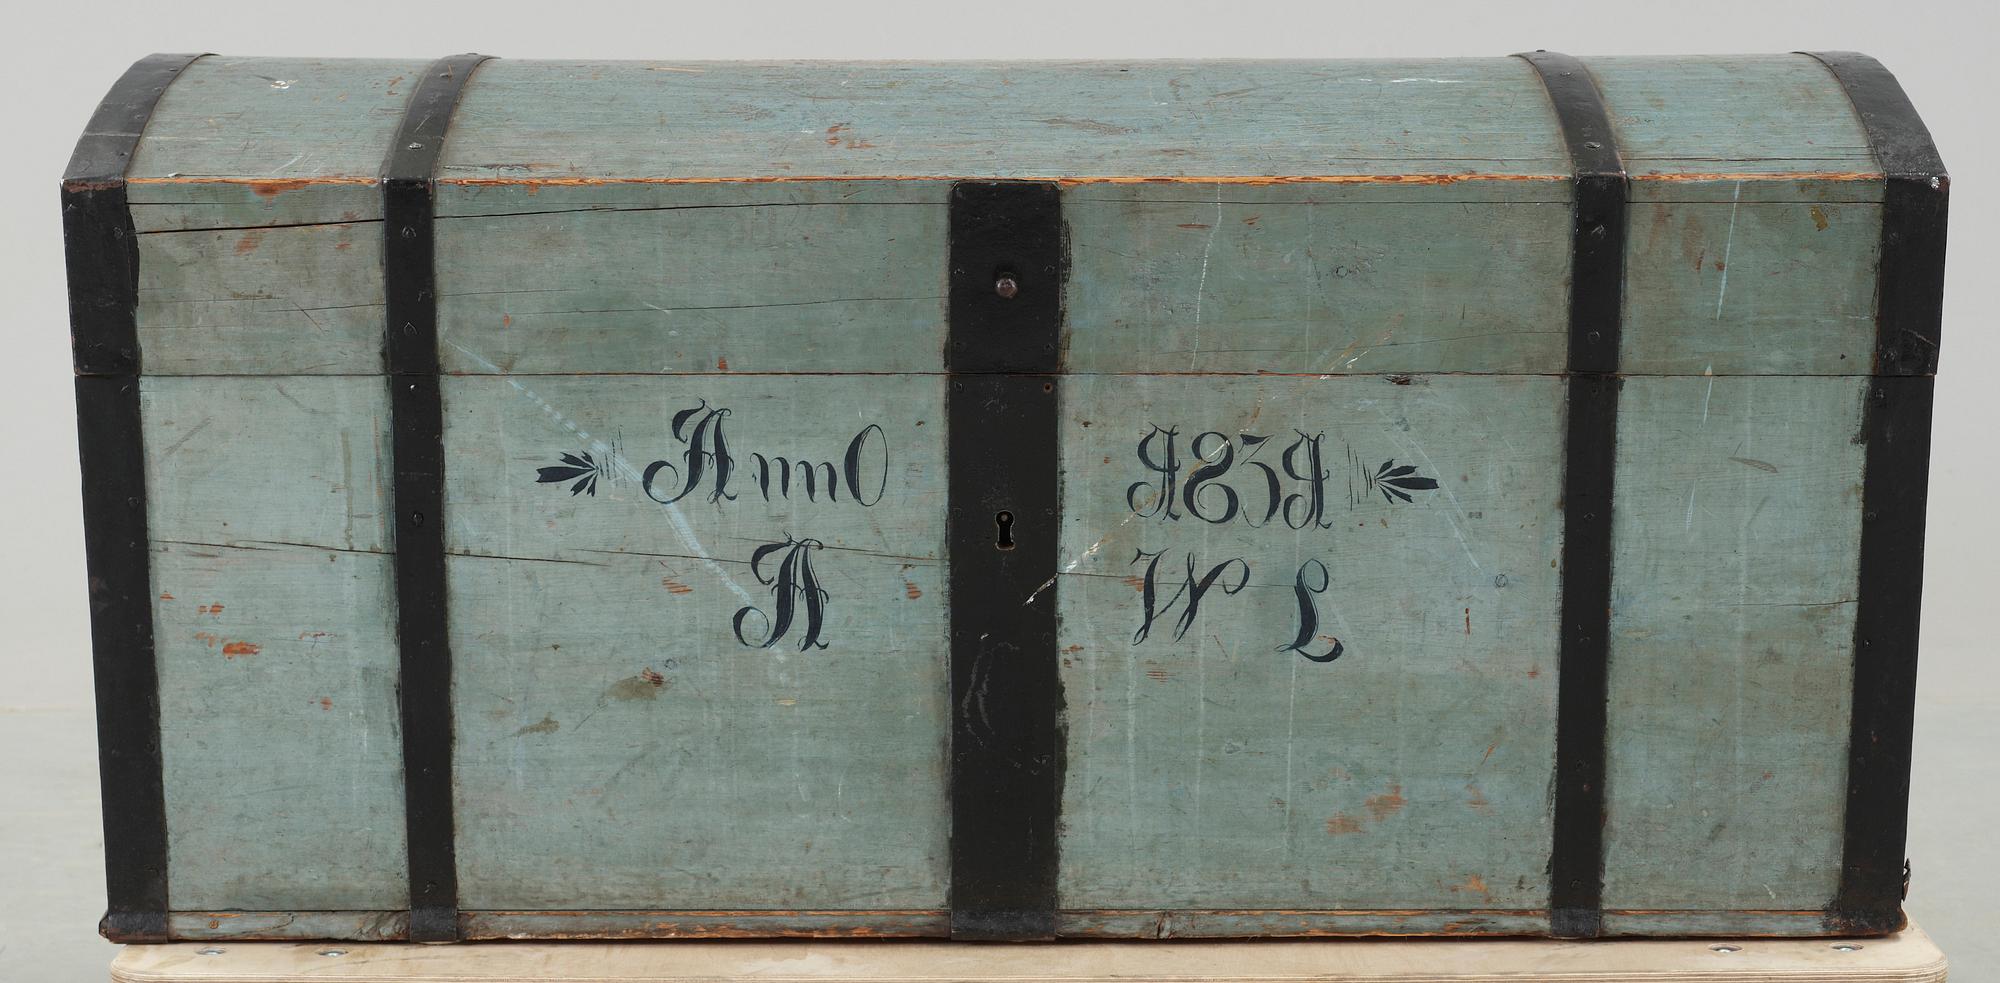 AnnO 1831
A W L